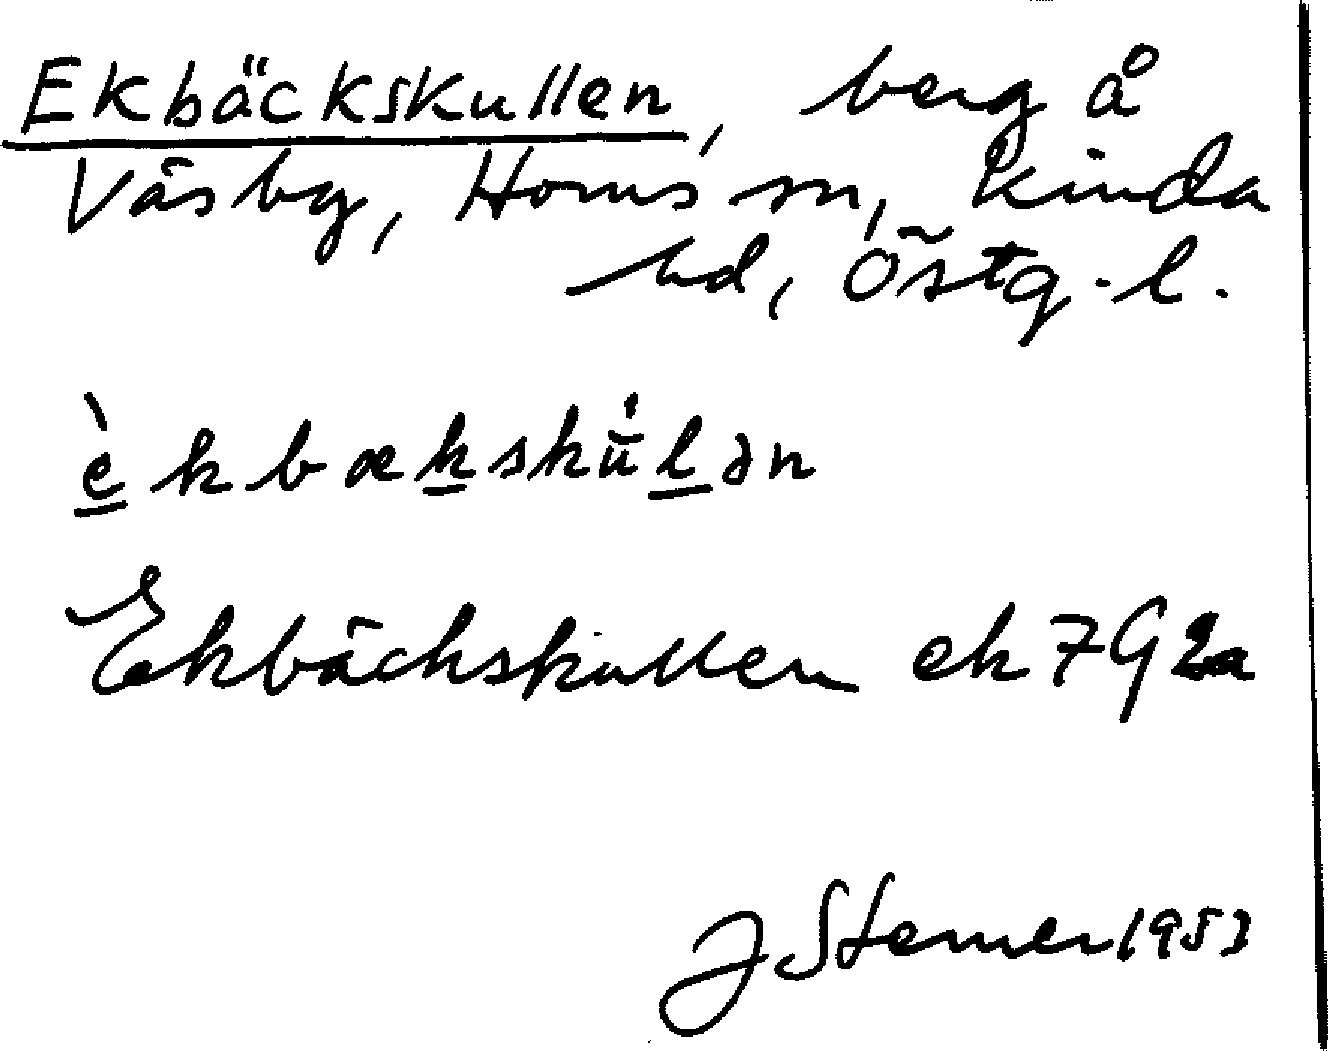 Ekbäckskullen, berg å
Väsby, Horns sn, Kinda
hd, Östg.l.
èkbækskùlən
Ekbäckskullen ek 7G2a
J Sterner 1953